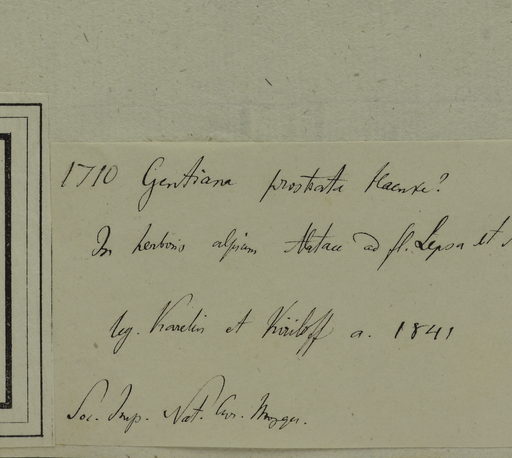 1710 Gentiana prostrata Haenke?
In herbosis alpium Alatau ad fl. Lepsa et
leg. Karelin et Kiriloff a. 1841
Soc. Imp. Nat. Cur. Mosqu.